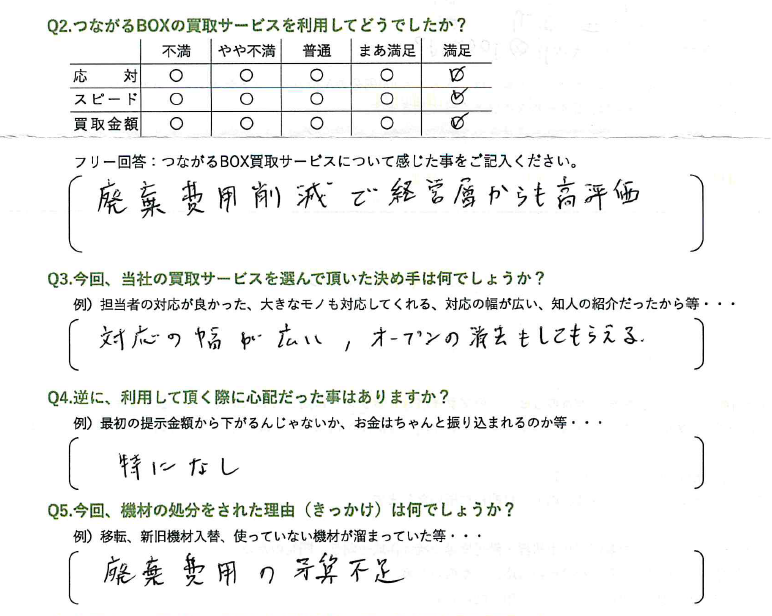 Q2.つながるBOXの買取サービスを利用してどうでしたか？
不満 やや不満 普通 まあ満足 満足
応対 ○ ○ ○ ○ ☑
スピード ○ ○ ○ ○ ☑
買取金額 ○ ○ ○ ○ ☑
フリー回答：つながるBOX買取サービスについて感じた事をご記入ください。
廃棄費用削減で経営層からも高評価
Q3.今回、当社の買取サービスを選んで頂いた決め手は何でしょうか？
例）担当者の対応が良かった、大きなモノも対応してくれる、対応の幅が広い、知人の紹介だったから等・・・
対応の幅が広い，オープンの消去もしてもらえる.
Q4.逆に、利用して頂く際に心配だった事はありますか？
例）最初の提示金額から下がるんじゃないか、お金はちゃんと振り込まれるのか等・・・
特になし
Q5.今回、機材の処分をされた理由（きっかけ）は何でしょうか？
例）移転、新旧機材入替、使っていない機材が溜まっていた等・・・
廃棄費用の予算不足